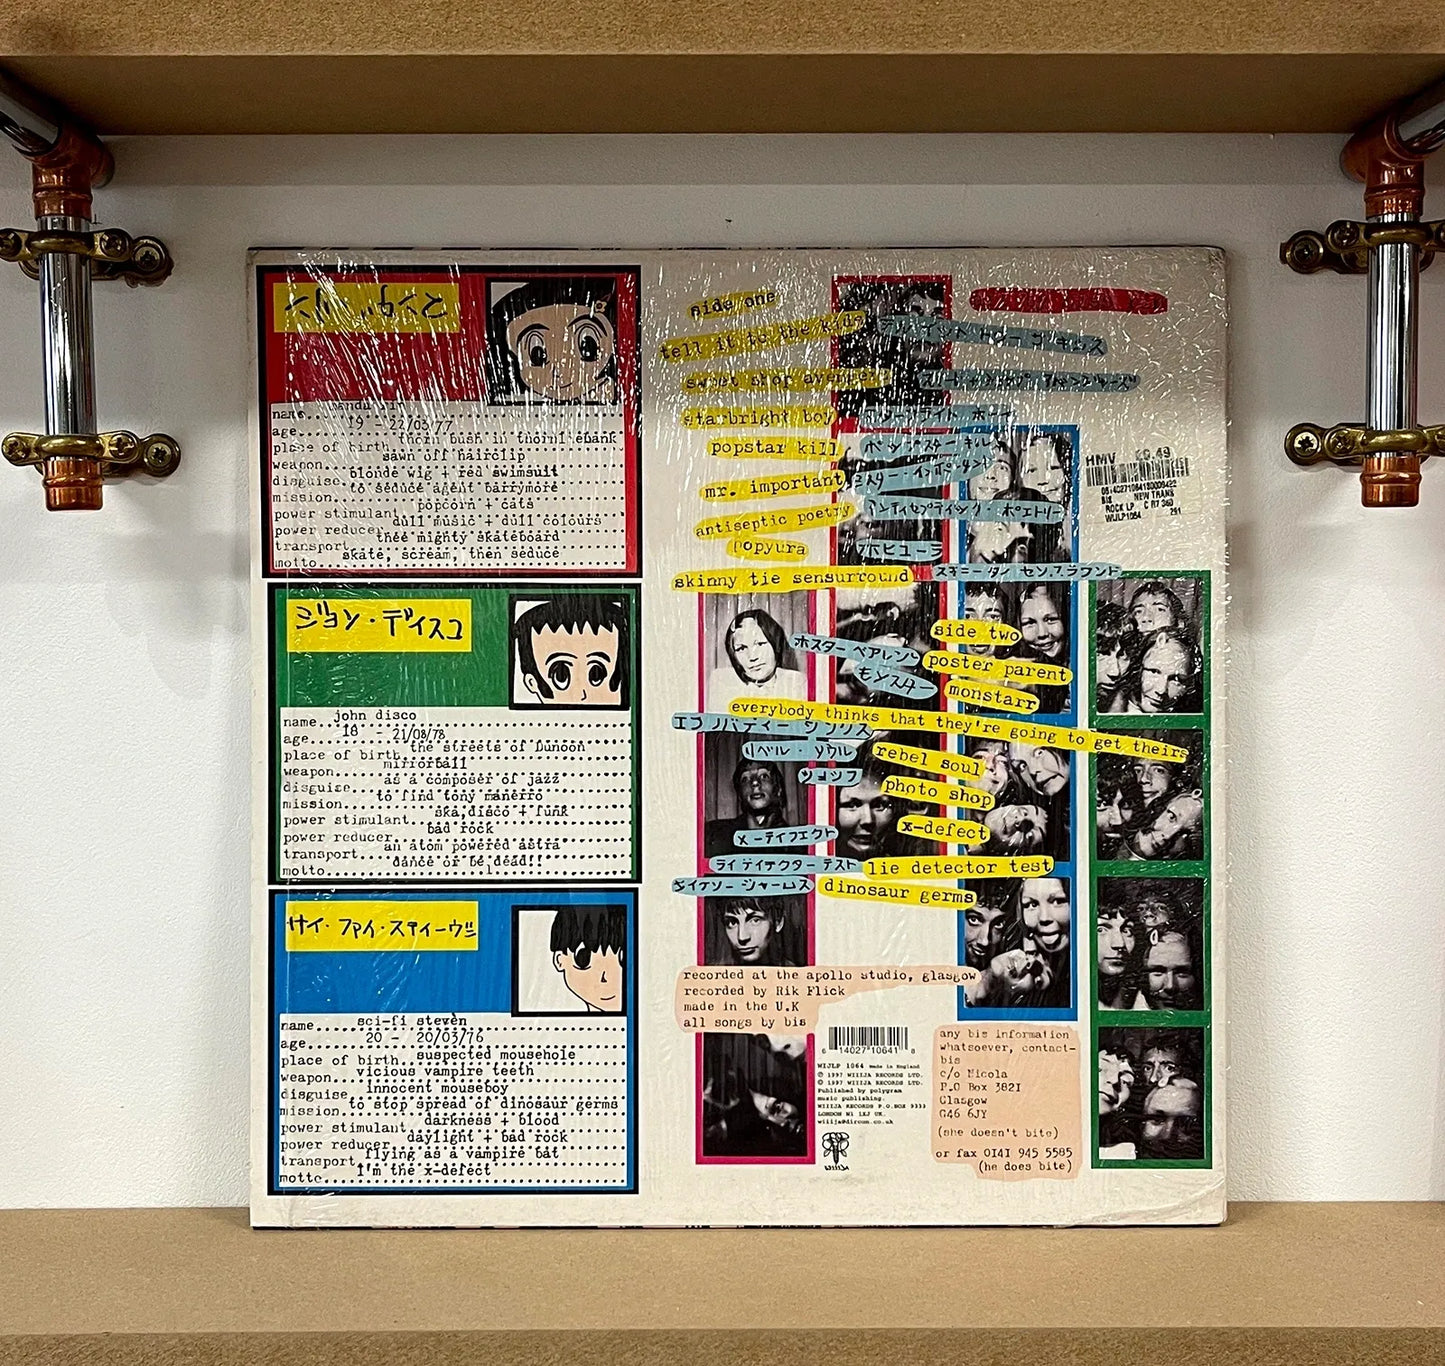 name
age 19 - 22/03/77
place of birth thorn bush in thornliebank
weapon sawn off hairclip
disguise blonde wig + red swimsuit
mission to seduce agent barrymore
power stimulant popcorn + cats
power reducer dull music + dull colours
transport thee mighty skateboard
motto skate, scream, then seduce
ジョン・ディスコ
name john disco
age 18 - 21/08/78
place of birth the streets of Dunoon
weapon mirrorball
disguise as a composer of jazz
mission to find tony manerro
power stimulant ska, disco + funk
power reducer bad rock
transport an atom powered astra
motto dance or be dead!!
サイ・ファイ・スティーヴン
name sci-fi steven
age 20 - 20/03/76
place of birth suspected mousehole
weapon vicious vampire teeth
disguise innocent mouseboy
mission to stop spread of dinosaur germs
power stimulant darkness + blood
power reducer daylight + bad rock
transport flying as a vampire bat
motto I'm the x-defect
side one
tell it to the kids
sweet shop avengerz
starbright boy スターブライト ボーイ
popstar kill ポップスター キル
mr. important ミスター インポータント
antiseptic poetry アンティセプティック・ポエトリー
popyura ポピューラ
skinny tie sensurround スキニー タイ センサラウンド
side two
ポスター ペアレント poster parent
モンスター monstarr
everybody thinks that they're going to get theirs
エブリバディー シンクス
リベル・ソウル rebel soul
ショップ photo shop
x-ディフェクト x-defect
ライ ディテクター テスト lie detector test
ダイナソー ジャームス dinosaur germs
HMV £0.49
BIS NEW TRANS
ROCK LP C R7 360
WIJLP1064 251
recorded at the apollo studio, glasgow
recorded by Rik Flick
made in the U.K
all songs by bis
6 14027 10641 8
WIJLP 1064 Made in England
℗ 1997 WIIIJA RECORDS LTD.
© 1997 WIIIJA RECORDS LTD.
Published by polygram
music publishing.
WIIIJA RECORDS P.O.BOX 9333
LONDON W1 1XJ UK.
wiiija@dircon.co.uk
any bis information
whatsoever, contact-
bis
c/o Nicola
P.O Box 3821
Glasgow
G46 6JY
(she doesn't bite)
or fax 0141 945 5585
(he does bite)